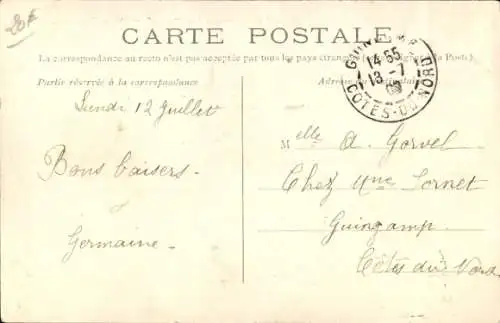 20€
CARTE POSTALE
La correspondance au recto n'est pas acceptée par tous les pays étrangers Poste.)
Partie réservée à la correspondance
Adresse du
14 55
13 - 7
CÔTES-DU-NORD
Lundi 12 Juillet
Bons baisers -
Germaine -
Melle A. Gorvel
Chez Mme
Guingamp.
Côtes du Nord